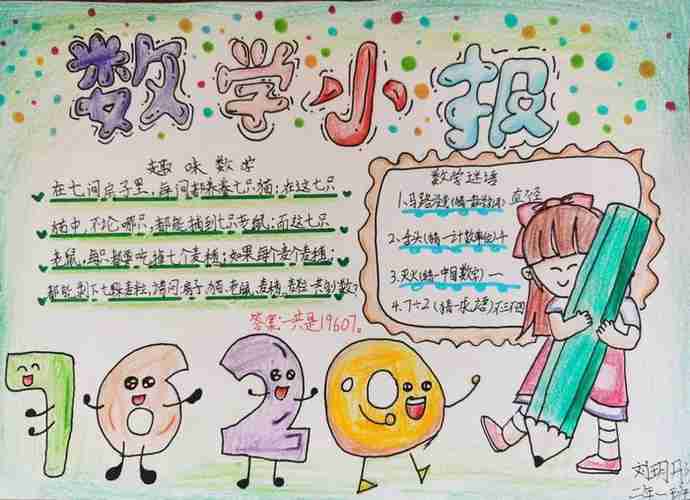 数学小报
趣味数学
在七间房子里,每间都养着七只猫;在这七只
猫中,不论哪只,都能捕到七只老鼠;而这七只
老鼠,每只都要吃掉七个麦穗;如果每个麦穗
都能剥下七颗麦粒,请问:房子、猫、老鼠、麦穗、麦粒一共多少数?
答案:一共是19607。
数学迷语
1、马路 直径
2、舌头(猜一计数单位)千
3、灭火(猜一中国数字)一
4、7÷2(猜一成语)不三不四
7 6 2 0
刘玥
二年一班